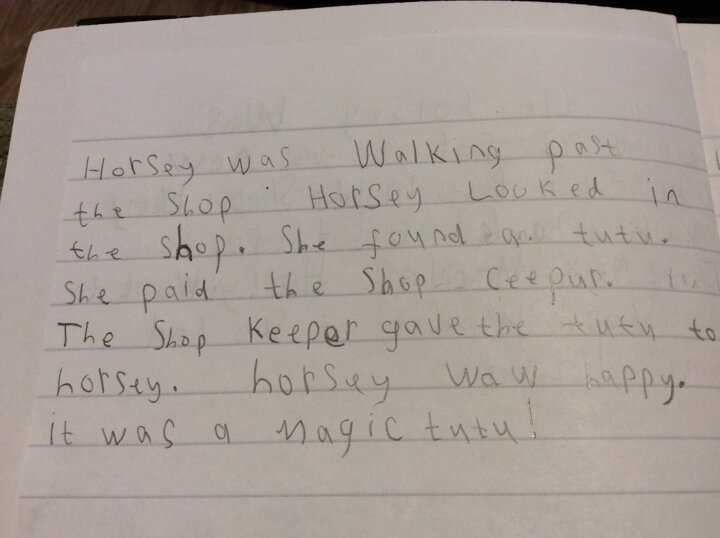 Horsey was Walking past
the Shop. Horsey Looked in
the shop. She found a tutu.
She paid the Shop Ceepur.
The Shop Keeper gave the tutu to
horsey. horsey waw happy.
it was a magic tutu!